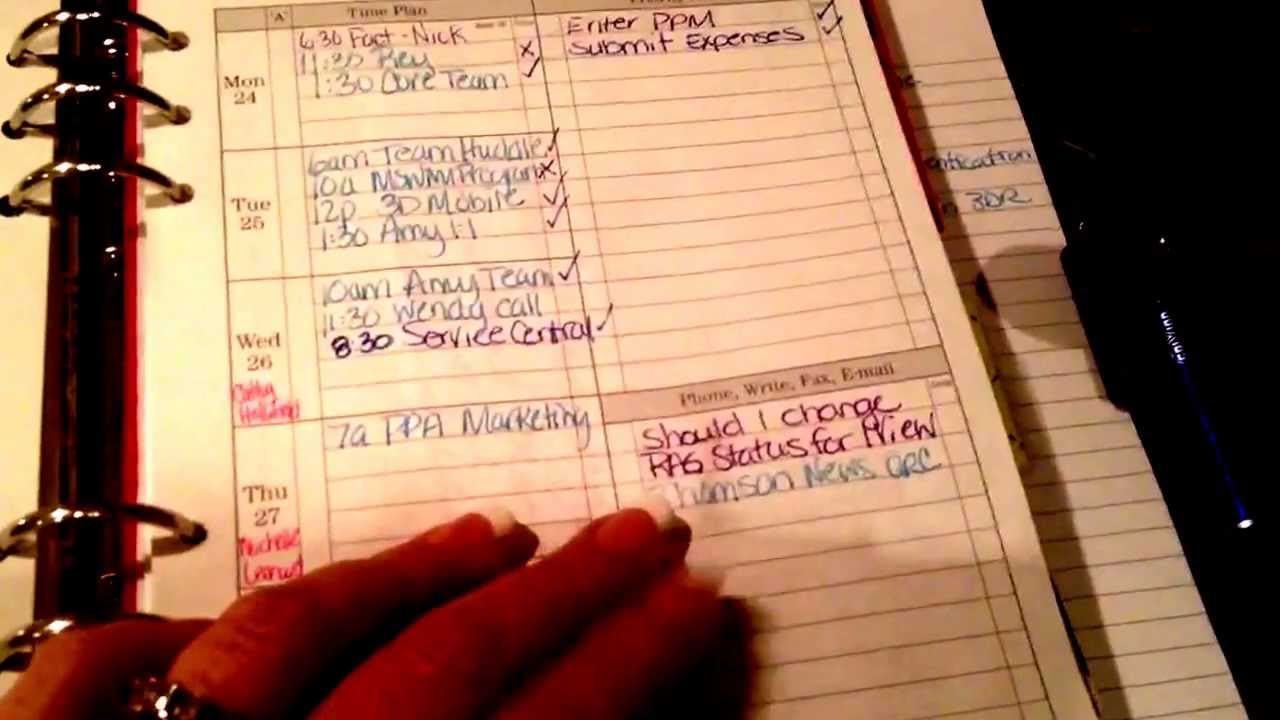 "A"
Time Plan
6:30 Fact - Nick
11:30 Rey
1:30 Core Team
Mon
24
Enter PPM
Submit Expenses
6am Team Huddle
10a MSWM
12p 3D Mobile
1:30 Amy 1:1
Tue
25
10am Amy Team
11:30 Wendy call
8:30 Service Central
Wed
26
Cathy
7a PPA Marketing
Thu
27
Michelle
Phone, Write, Fax, E-mail
Should I change
RAG Status for PView
News
3DR